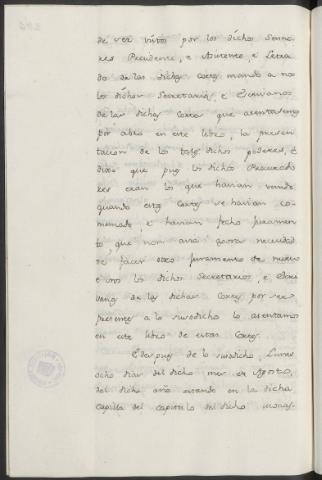 de ver visto por los dicho Senno
res Presidente, e Asistente, e Letra
do de las dichas cortes mando a nos
los dichos Secretarios, e Escrivanos
de las dichas Cortes que asentasemos
por abto en este libro, la presen
tacion de los tales dichos poderes, e
dixo que pues los dichos Procurado
res eran los que havian venido
quando estas Cortes se havian co
menzado, e havian fecho juramen
to que non avia agora necesidad
de facer otro juramento de nuevo
e nos los dichos Secretarios, e Escri
vanos de las dichas Cortes por ser
presentes a lo susodicho lo asentamos
en este libro de estas Cortes.
E despues de lo susodicho, Lunes
ocho dias del dicho mes de Agosto,
del dicho año estando en la dicha
capilla del capitulo del dicho monas-